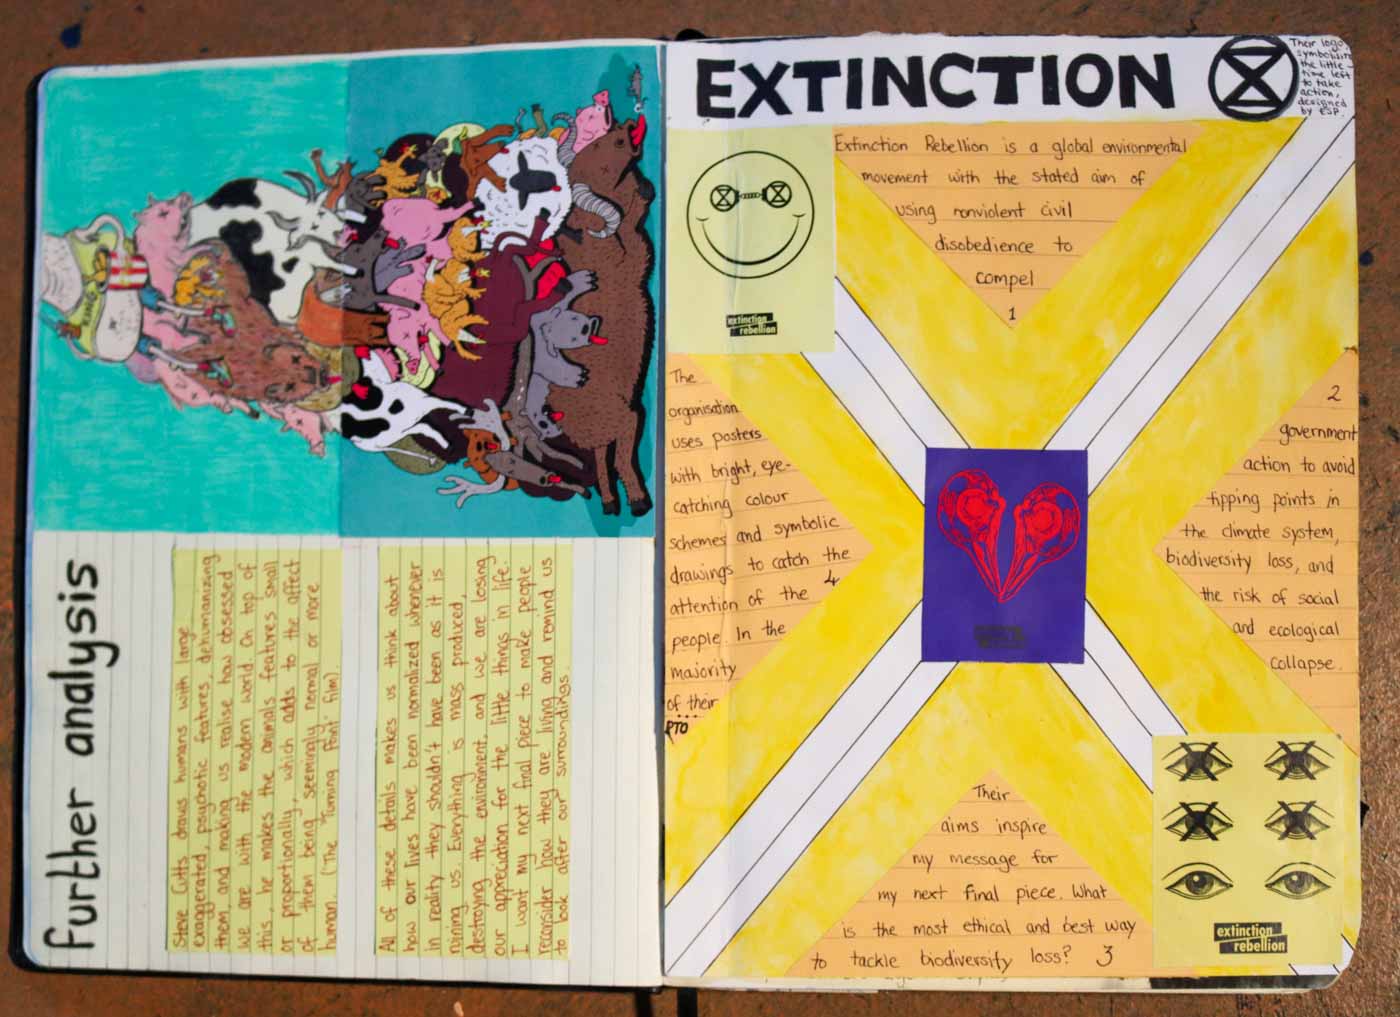 Further analysis
Steve Cutts draws humans with large
exaggerated, psychotic features, dehumanizing
them, and making us realise how obsessed
we are with the modern world. On top of
this, he makes the animals features small
or proportionally, which adds to the affect
of them being seemingly normal or more
human. (The 'Turning Point' film).
All of these details makes us think about
how our lives have been normalized whenever
in reality they shouldn't have been as it is
ruining us. Everything is mass produced,
destroying the environment, and we are losing
our appreciation for the little things in life.
I want my next final piece to make people
reconsider how they are living and remind us
to look after our surroundings.
KING
EXTINCTION
Their logo,
symbolising
the little
time left
to take
action,
designed
by ESP.
extinction
rebellion
Extinction Rebellion is a global environmental
movement with the stated aim of
using nonviolent civil
disobedience to
compel
1
2
government
action to avoid
tipping points in
the climate system,
biodiversity loss, and
the risk of social
and ecological
collapse.
Their
aims inspire
my message for
my next final piece. What
is the most ethical and best way
to tackle biodiversity loss? 3
The
organisation
uses posters
with bright, eye-
catching colour
schemes and symbolic
drawings to catch the
attention of the 4
people. In the
majority
of their
PTO
extinction
rebellion